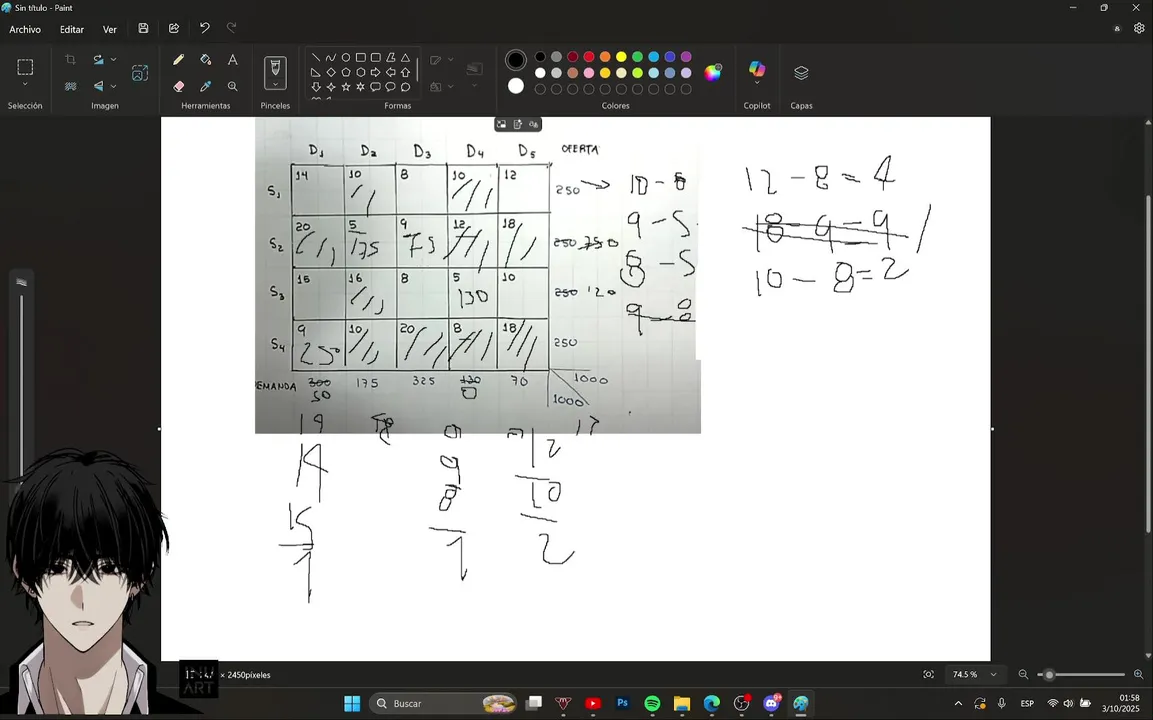 Sin título - Paint
Archivo Editar Ver
Selección Imagen Herramientas Pinceles Formas Colores Copilot Capas
D1 D2 D3 D4 D5 OFERTA
S1 14 10 8 10 12 250
S2 20 5 175 9 75 12 18 250 75 0
S3 15 16 8 5 130 10 250 120
S4 9 250 10 20 8 18 250
DEMANDA 300 175 325 130 70 1000
50 0 1000
10 - 8
9 - 5
8 - 5
9 - 8
12 - 8 = 4
18 - 9 = 9
10 - 8 = 2
14
15
1
9
8
1
12
10
2
× 2450píxeles
74.5 %
Buscar
ESP
01:58
3/10/2025